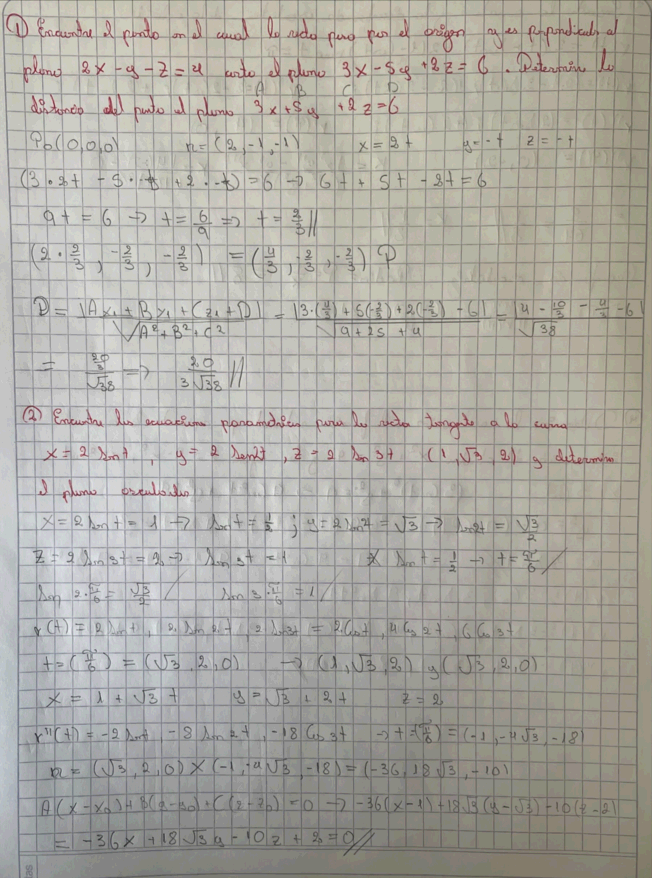 ① Encuentre el punto en el cual la recta pasa por el origen y es perpendicular al
plano 2x - y - z = 4 corta el plano 3x - 5y + 2z = 6 . Determine la
A B C D
distancia del punto al plano 3x + 5y + 2z = 6
P₀(0,0,0) n = (2, -1, -1) x = 2t y = -t z = -t
(3 · 2t - 5 · -t + 2 · -t) = 6 → 6t + 5t - 2t = 6
9t = 6 → t = 6/9 ⇒ t = 2/3 //
(2 · 2/3, -2/3, -2/3) = (4/3, -2/3, -2/3) P
D = |Ax₁ + By₁ + Cz₁ + D| / √(A² + B² + C²) = |3·(4/3) + 5(-2/3) + 2(-2/3) - 6| / √(9 + 25 + 4) = |4 - 10/3 - 4/3 - 6| / √38
= (20/3)/√38 ⇒ 20/(3√38) //
② Encuentre las ecuaciones parametricas para la recta tangente a la curva
x = 2 Sen t , y = 2 Sen 2t , z = 2 Sen 3t (1, √3, 2) y determine
el plano osculador
x = 2 Sen t = 1 → Sen t = 1/2 ; y = 2 Sen 2t = √3 → Sen 2t = √3/2
z = 2 Sen 3t = 2 → Sen 3t = 1 * Sen t = 1/2 → t = π/6 //
Sen 2·π/6 = √3/2 / Sen 3·π/6 = 1 /
r(t) = 2 Sen t, 2 Sen 2t, 2 Sen 3t = 2 Cos t, 4 Cos 2t, 6 Cos 3t
t = (π/6) = (√3, 2, 0) → (1, √3, 2) y (√3, 2, 0)
x = 1 + √3 t y = √3 + 2t z = 2
r''(t) = -2 Sen t, -8 Sen 2t, -18 Cos 3t → t = (π/6) = (-1, -4√3, -18)
n = (√3, 2, 0) × (-1, -4√3, -18) = (-36, 18√3, -10)
A(x - x₀) + B(y - y₀) + C(z - z₀) = 0 → -36(x - 1) + 18√3(y - √3) - 10(z - 2)
= -36x + 18√3y - 10z + 2 = 0 //